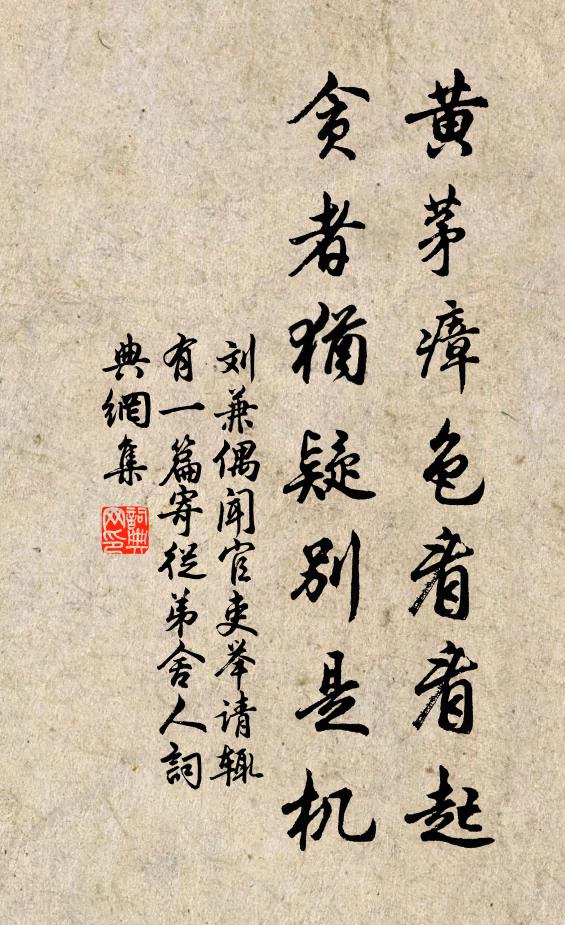 黄茅瘴色看看起
贪者猶疑别是机
刘兼偶闻官吏举请辄
有一篇寄從弟舍人詞
典網集
詞典网印